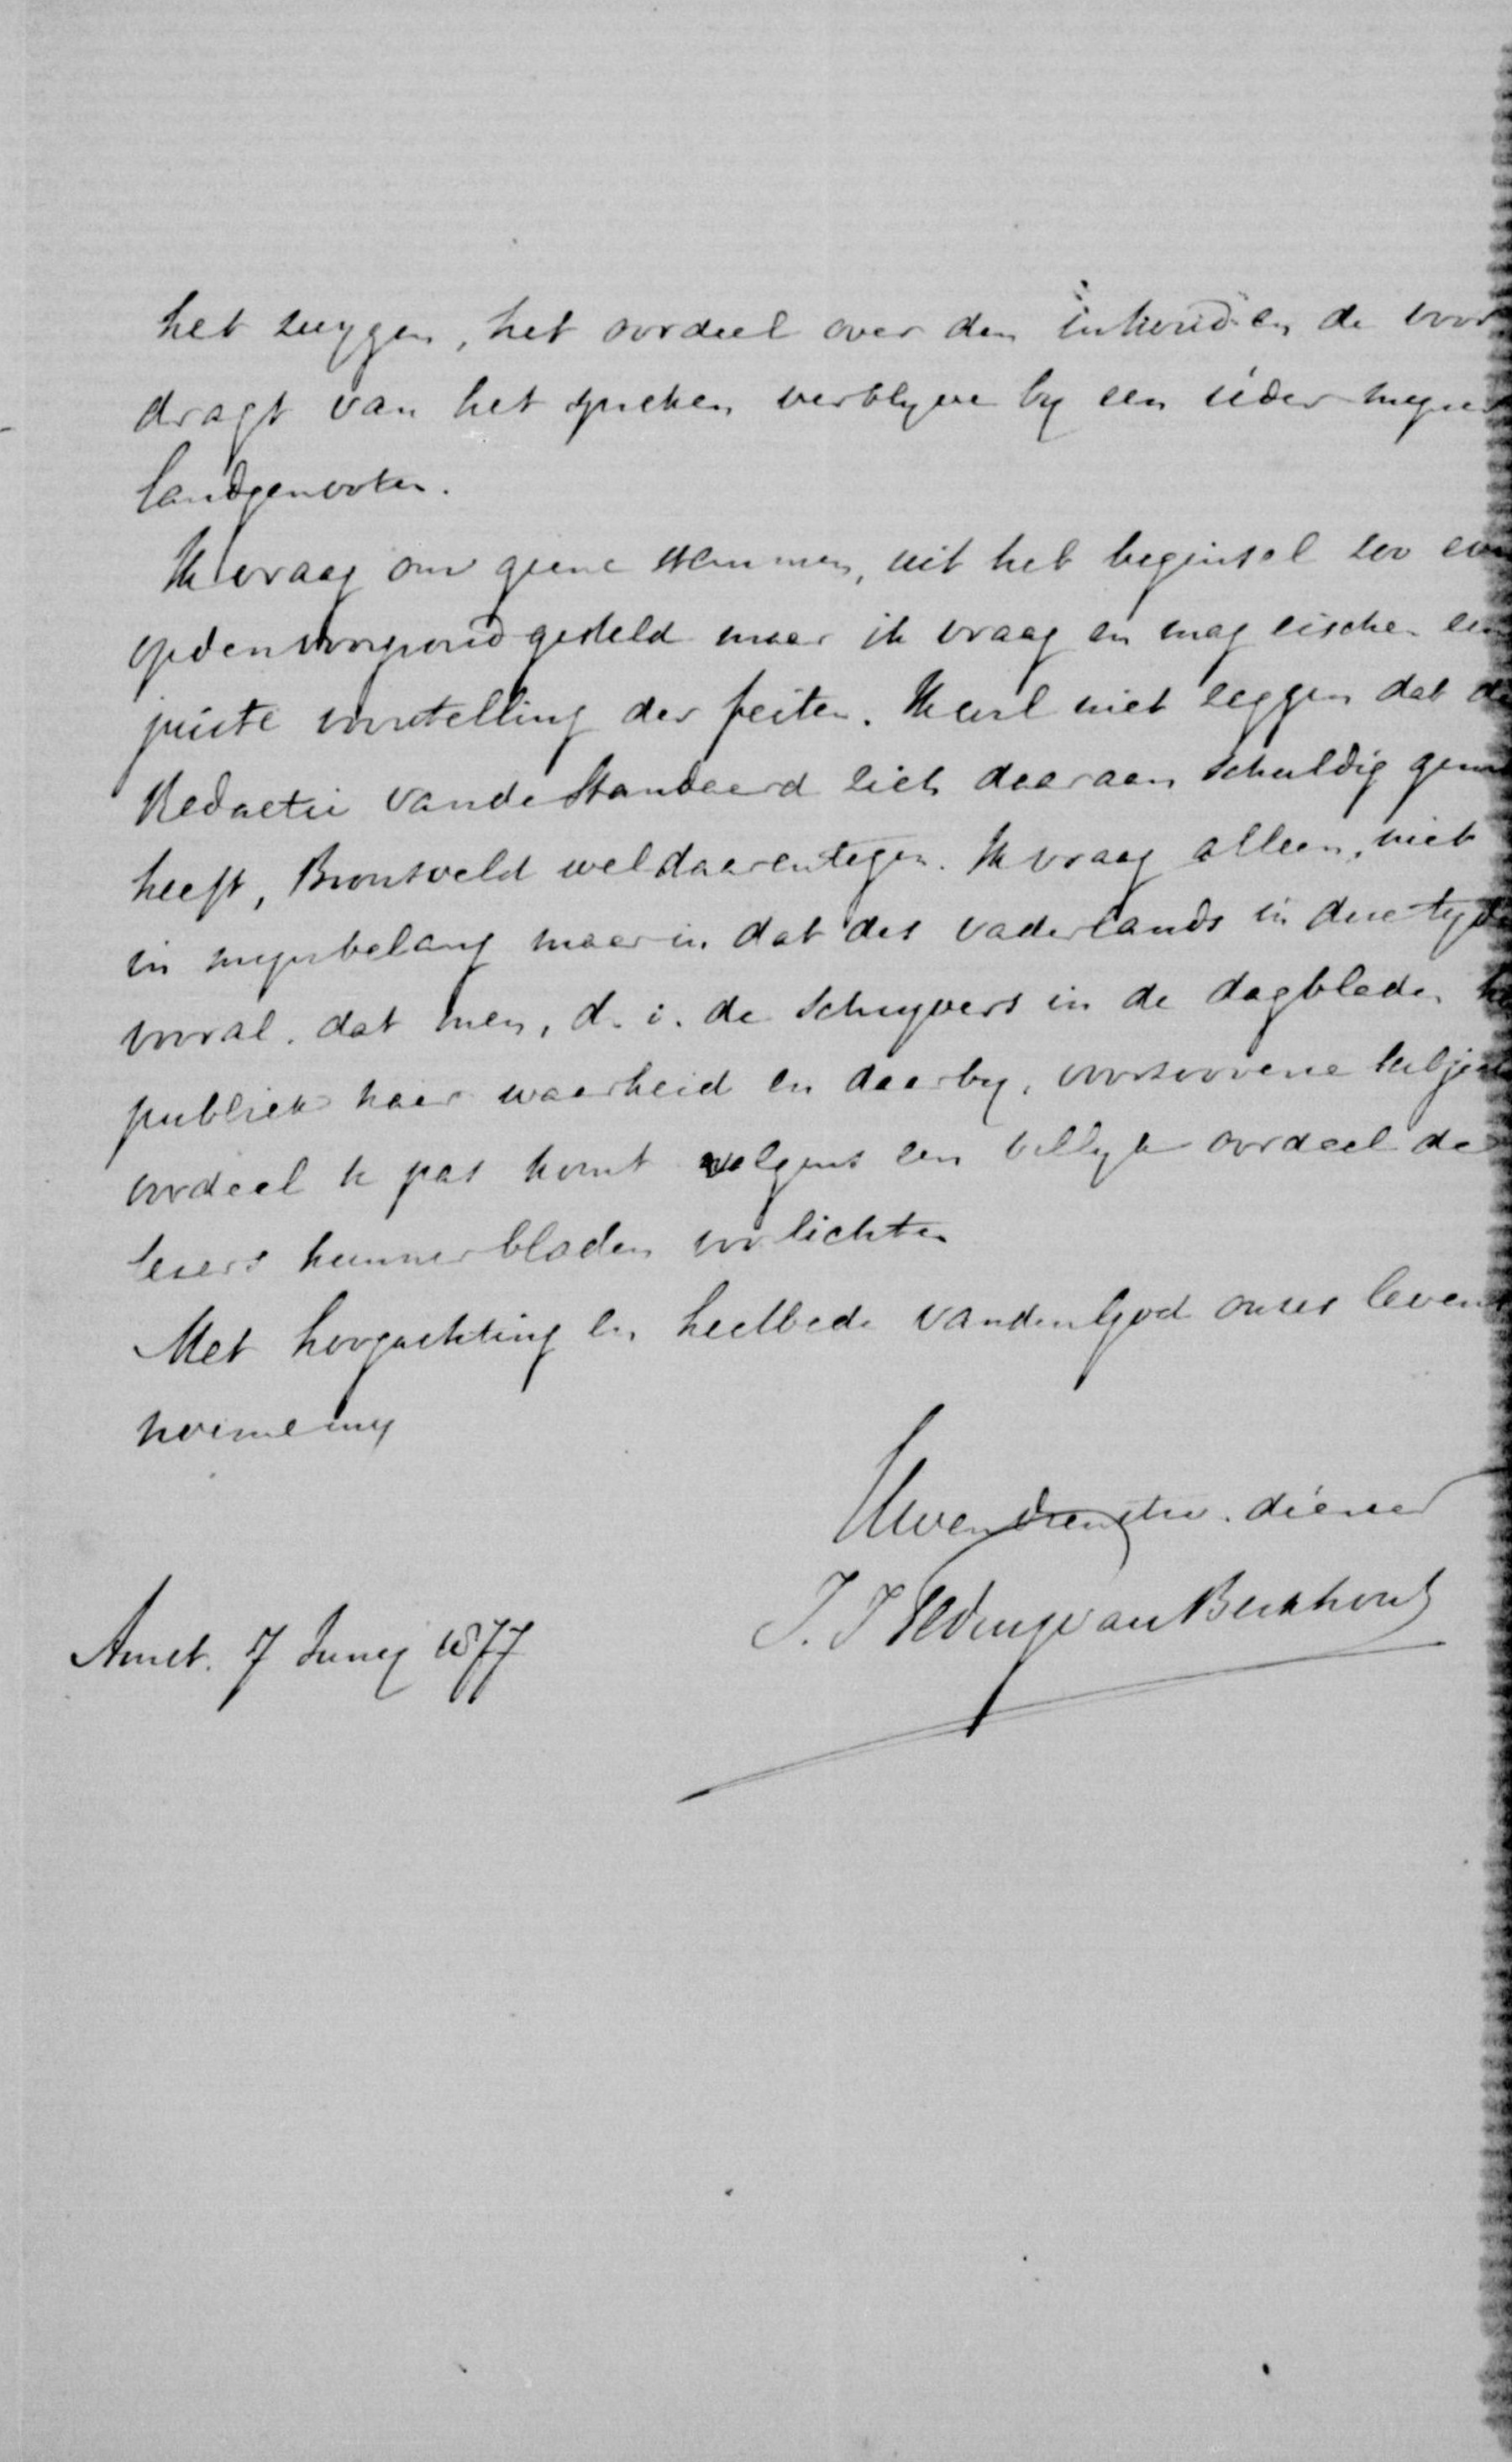 het zwygen, het oordeel over den inhoud en de voor
dragt van het spreken verblyve by een ieder myner
landgenooten.
Ik vraag om geene stemmen, uit het beginsel zoo even
op den voorgrond gesteld maar ik vraag en mag eischen een
juiste voorstelling der feiten. Ik wil niet zeggen dat de
Redactie van de Standaard zich daaraan schuldig gem
heeft, Bronsveld wel daarentegen. Ik vraag alleen, niet
in myn belang maar in dat des vaderlands in deze tyd
vooral. dat men, d. i. de schryvers in de dagbladen he
publiek naar waarheid en daarby, voorzoovere subject
oordeel te pas komt volgens een billyk oordeel de
lezers hunner bladen voorlichten
Met hoogachting en heilbede van den God onzes levens
noeme my
Uwen dienstw. dienaar
J. J Teding van Berkhout
Amst. 7 Juny 1877